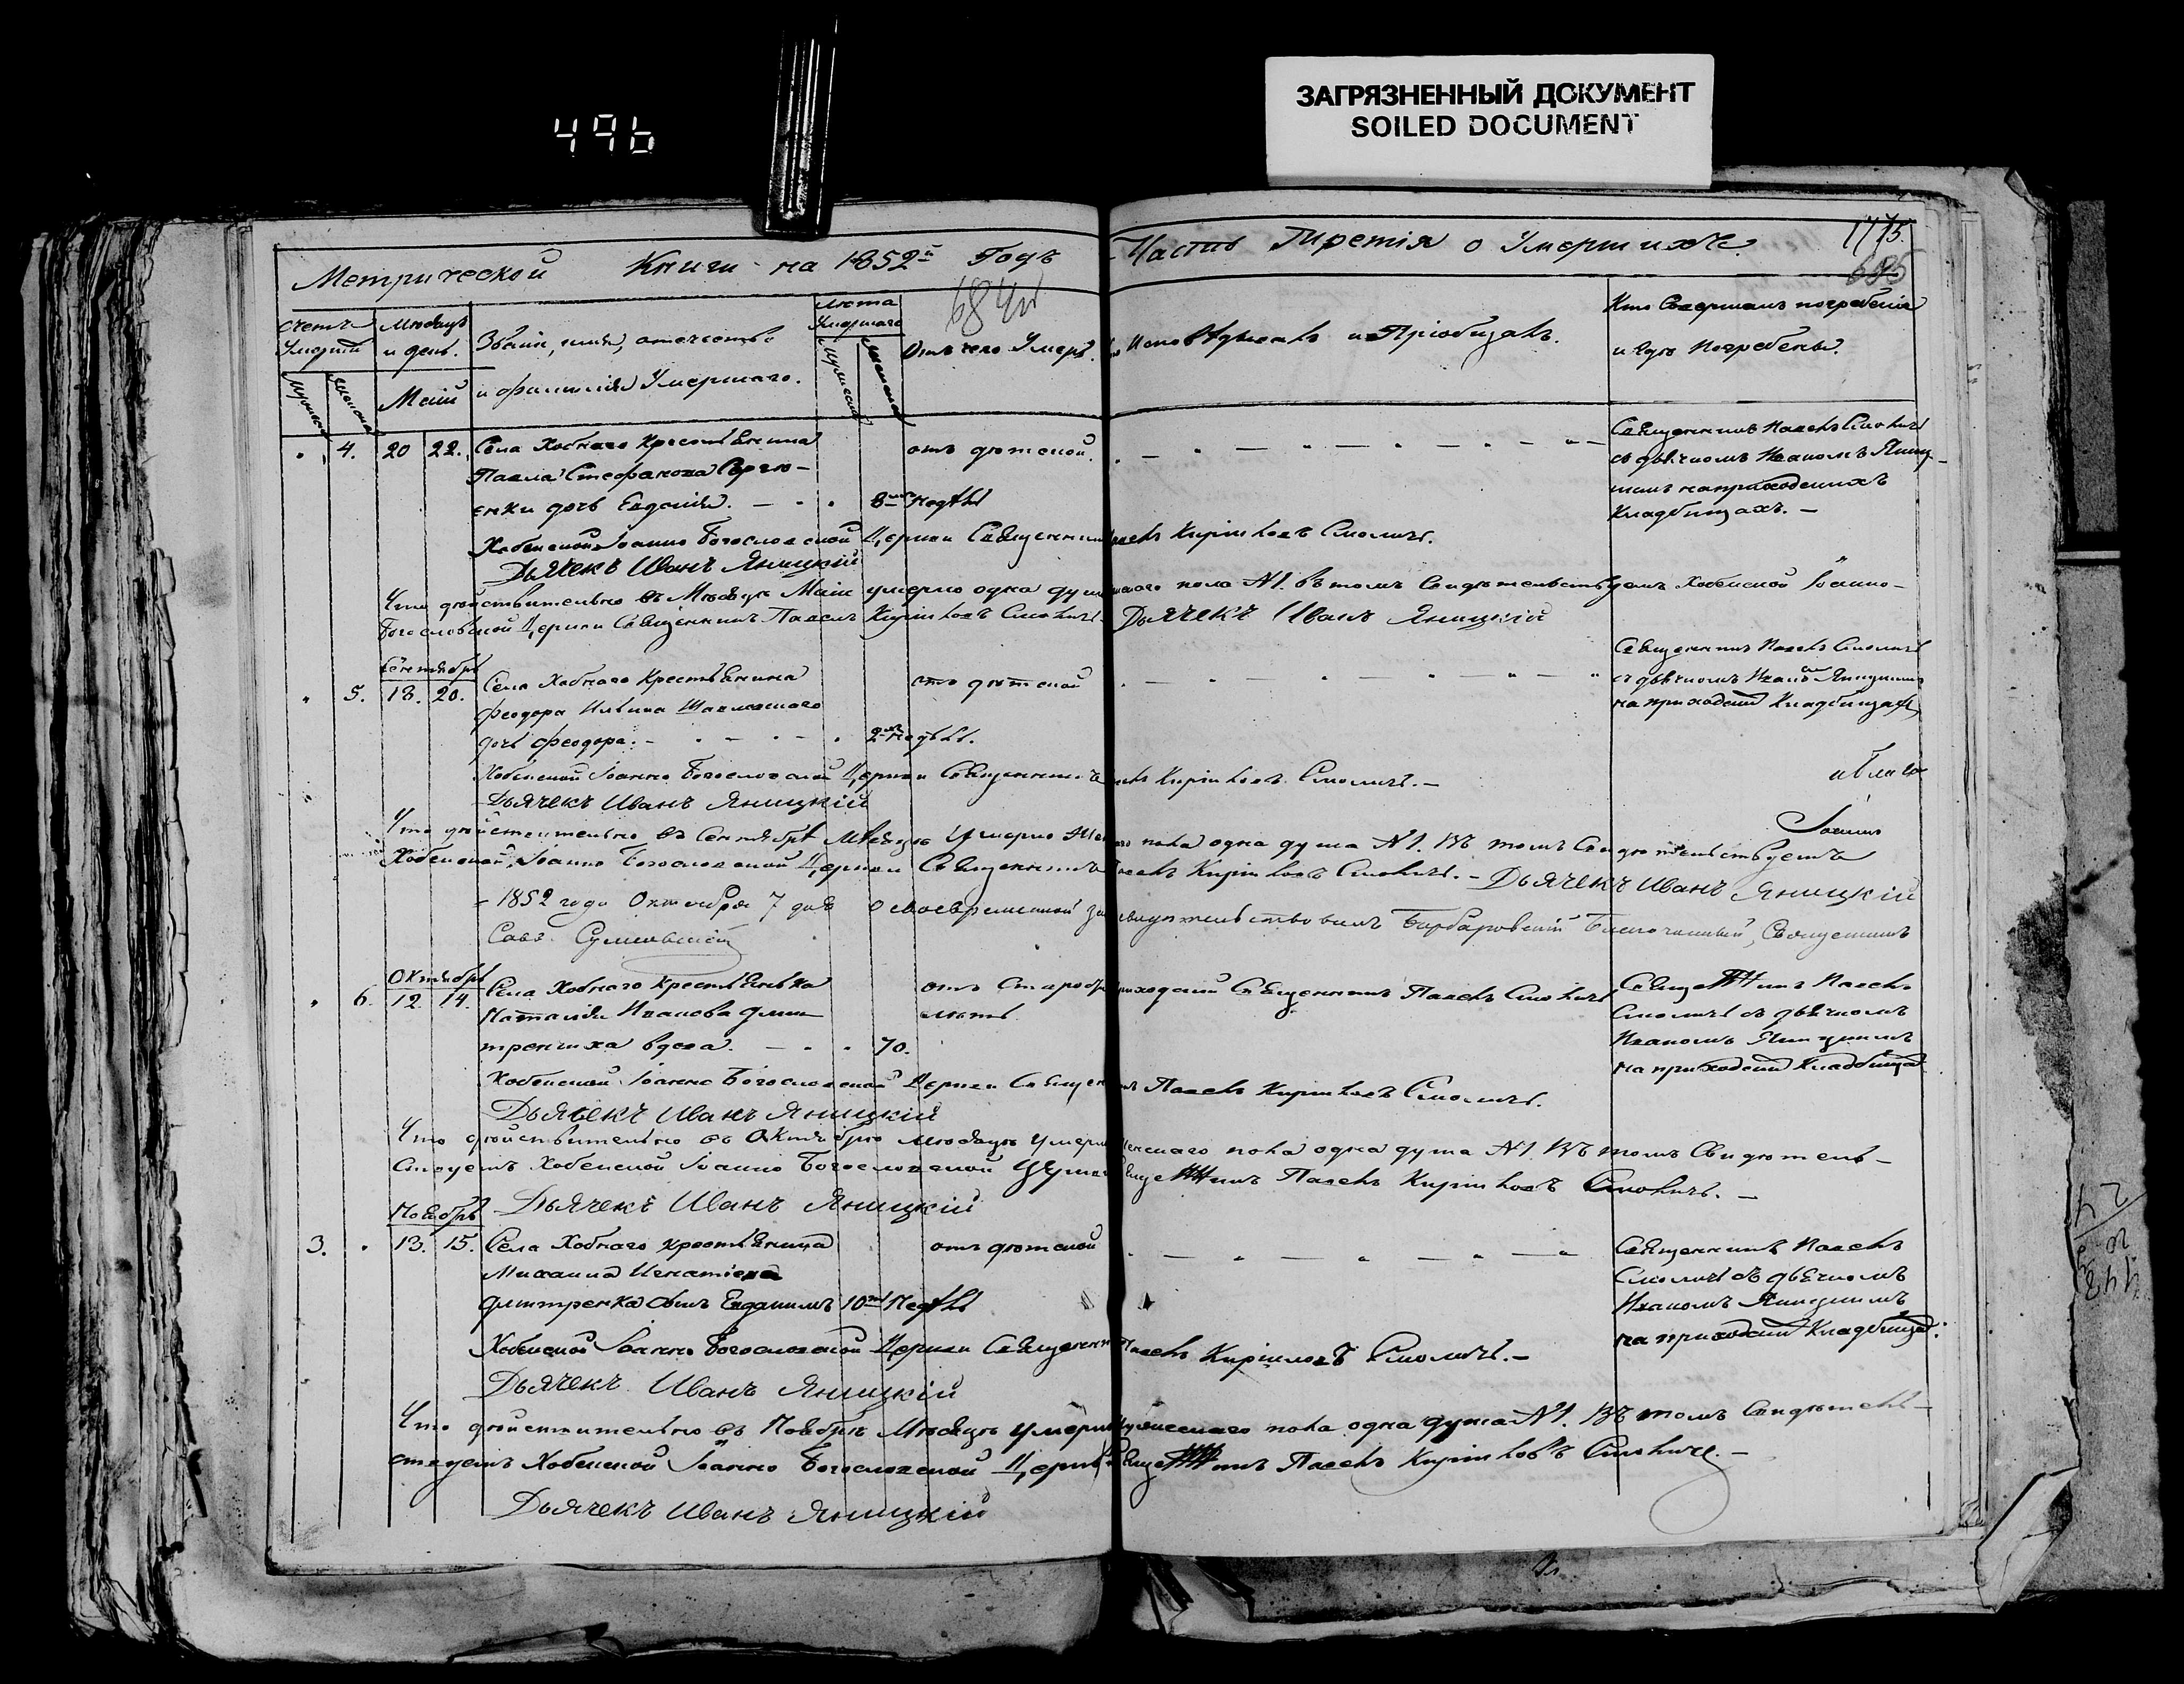 496
ЗАГРЯЗНЕННЫЙ ДОКУМЕНТ
SOILED DOCUMENT
Метрической Книги на 1852й Годъ Часть Третія о Умершихъ.
1775.
684
685
счетъ Умерш
Месяцъ и день.
Маій
Званіе, имя, отечество
и фамилія Умершаго.
лета Умершаго
Отъ чего Умеръ.
Кто Исповедывалъ и Пріобщалъ.
Кто Совершалъ погребеніе
и где Погребены.
4. 20 22. Села Хобнаго Крестьянина
Павла Стефанова Серге-
енки дочь Евдокія. 8 недель
отъ детской.
Священникъ Павелъ Смоличъ
съ дьячкомъ Иваномъ Яниц-
кимъ на приходскихъ
Кладбищахъ. —
Хобенской Іоанно Богословской Церкви Священникъ Павелъ Кириловъ Смоличъ.
Дьячекъ Иванъ Яницкій
Что действительно въ Месяце Маіе умерло одна душа женскаго пола №1. въ томъ Свидетельствуемъ Хобенской Іоанно-
Богословской Церкви Священникъ Павелъ Кириловъ Смоличъ Дьячекъ Иванъ Яницкій
Сентябрь
5. 18. 20. Села Хобнаго Крестьянина
Феодора Ильина
дочь Феодора. 2 недель.
отъ детской
Священникъ Павелъ Смоличъ
съ дьячкомъ Иваномъ Яницкимъ
на приходскихъ Кладбищахъ
Хобенской Іоанно Богословской Церкви Священникъ Павелъ Кириловъ Смоличъ. —
Дьячекъ Иванъ Яницкій
Что действительно въ Сентябре Месяце Умерло женскаго пола одна душа №1. Въ томъ Свидетельствуемъ
Хобенской Іоанно Богословской Церкви Священникъ Павелъ Кириловъ Смоличъ. — Дьячекъ Иванъ Яницкій
1852 года Октября 7 дня о своевременной записке свидетельствовалъ Барбаровскій Благочинный, Священникъ
Савва
Октябрь
6. 12 14. Села Хобнаго Крестьянка
Наталія Иванова Дми-
тренчиха вдова. 70.
отъ Старости
летъ
приходскій Священникъ Павелъ Смоличъ
Священникъ Павелъ
Смоличъ съ дьячкомъ
Иваномъ Яницкимъ
на приходскихъ Кладбищахъ
Хобенской Іоанно Богословской Церкви Священникъ Павелъ Кириловъ Смоличъ.
Дьячекъ Иванъ Яницкій
Что действительно въ Октябре месяце умерло женскаго пола одна душа №1. Въ томъ Свидетель-
ствуемъ Хобенской Іоанно Богословской Церкви Священникъ Павелъ Кириловъ Смоличъ. —
Дьячекъ Иванъ Яницкій
Ноябрь
3. 13. 15. Села Хобнаго крестьянина
Михаила Игнатіева
Дмитренка сынъ Евдокимъ 10 Недель
отъ детской
Священникъ Павелъ
Смоличъ съ дьячкомъ
Иваномъ Яницкимъ
на приходскихъ Кладбищахъ.
Хобенской Іоанно Богословской Церкви Священникъ Павелъ Кириловъ Смоличъ. —
Дьячекъ Иванъ Яницкій
Что действительно въ Ноябре Месяце Умерло мужескаго пола одна душа №1. Въ томъ Свидетель-
ствуемъ Хобенской Іоанно Богословской Церкви Священникъ Павелъ Кириловъ Смоличъ. —
Дьячекъ Иванъ Яницкій